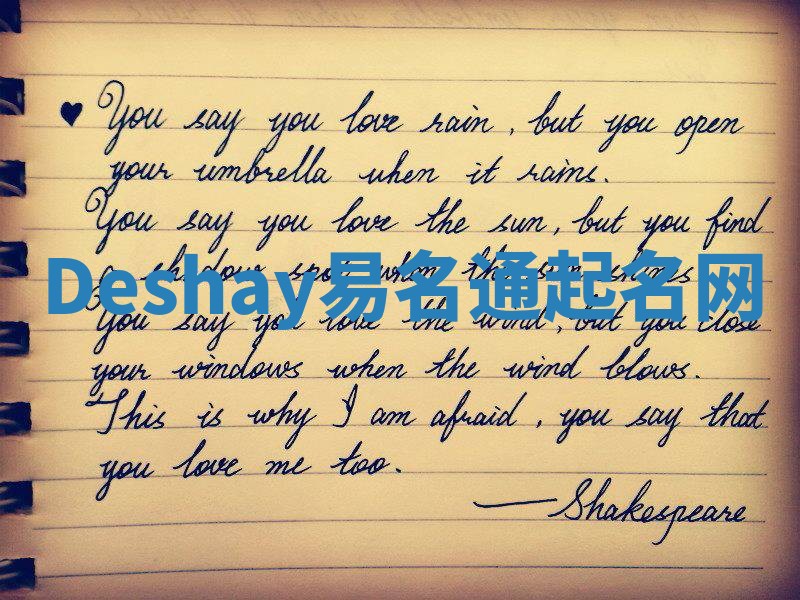 ♥ You say you love rain, but you open
your umbrella when it rains.
You say you love the sun, but you find
a shadow spot when the sun shines
Deshay易名通起名网
You say you love the wind, but you close
your windows when the wind blows.
This is why I am afraid, you say that
you love me too.
—Shakespeare